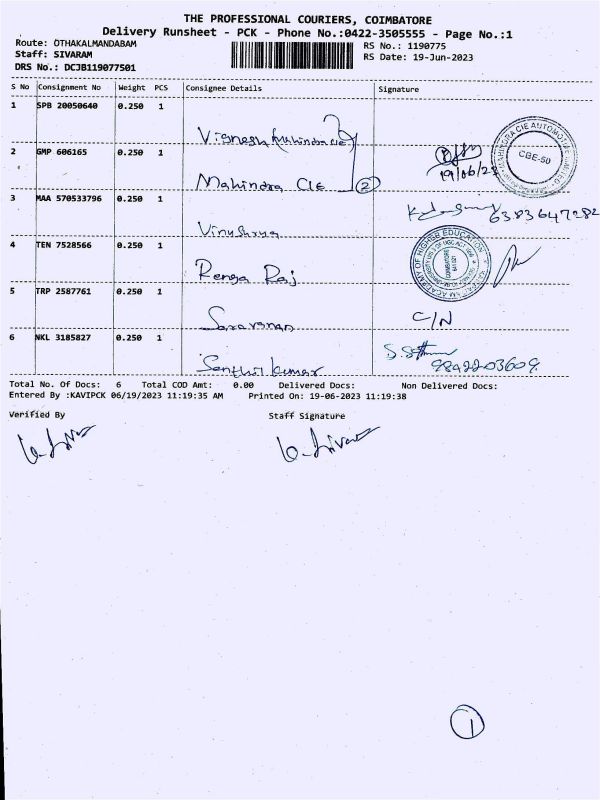 THE PROFESSIONAL COURIERS, COIMBATORE
Delivery Runsheet - PCK - Phone No.:0422-3505555 - Page No.:1
Route: OTHAKALMANDABAM
RS No.: 1190775
Staff: SIVARAM
RS Date: 19-Jun-2023
DRS No.: DCJB119077501
S No Consignment No Weight PCS Consignee Details Signature
1 SPB 20050640 0.250 1
Vignesh Mahindra CIE
2 GMP 606165 0.250 1
Mahindra CIE 2
19/06/23
MAHINDRA CIE AUTOMOTIVE LIMITED
CBE-50
3 MAA 570533796 0.250 1
6383647282
4 TEN 7528566 0.250 1
Renga Raj
ACADEMY OF HIGHER EDUCATION
COIMBATORE
641 021
5 TRP 2587761 0.250 1
Saravanan C/N
6 NKL 3185827 0.250 1
Senthil kumar 98422-03609
Total No. Of Docs: 6 Total COD Amt: 0.00 Delivered Docs: Non Delivered Docs:
Entered By :KAVIPCK 06/19/2023 11:19:35 AM Printed On: 19-06-2023 11:19:38
Verified By Staff Signature
1